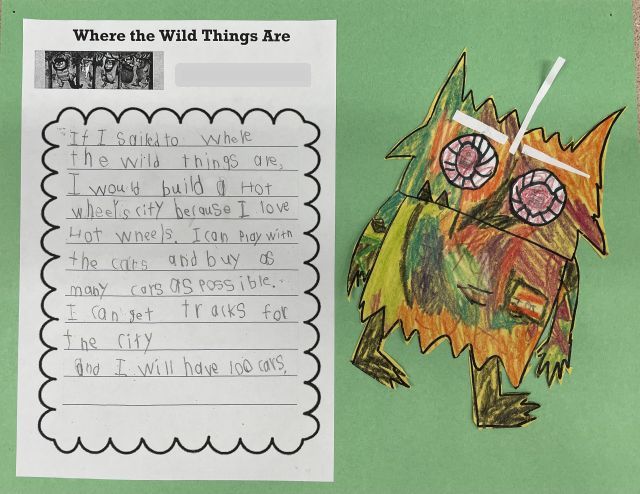 Where the Wild Things Are
If I sailed to where
the wild things are,
I would build a Hot
wheel's city because I love
Hot wheels. I can play with
the cars and buy as
many cars as possible.
I can get tracks for
the city
and I will have 100 cars.